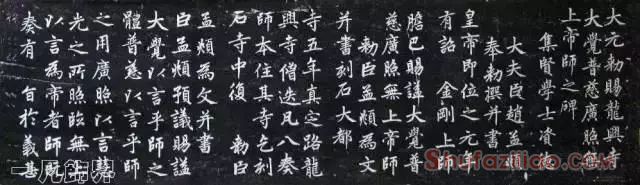 大元勅賜龍興寺
大覺普慈廣照無
上帝師之碑
集賢學士資德
大夫臣趙孟頫
奉勅撰并書
皇帝即位之元年
有詔 金剛上師
膽巴賜謚大覺普
慈廣照無上帝師
勅臣孟頫為文
并書刻石大都
寺五年真定路龍
興寺僧迭凡八奏
師本住其寺乞刻
石寺中復 勅臣
孟頫為文并書
臣孟頫預議賜謚
大覺以言乎師之
體普慈以言乎師
之用廣照以言慧
光之所照臨無上
以言為帝者師既
奏有 旨於義甚
Shufaziliao.com